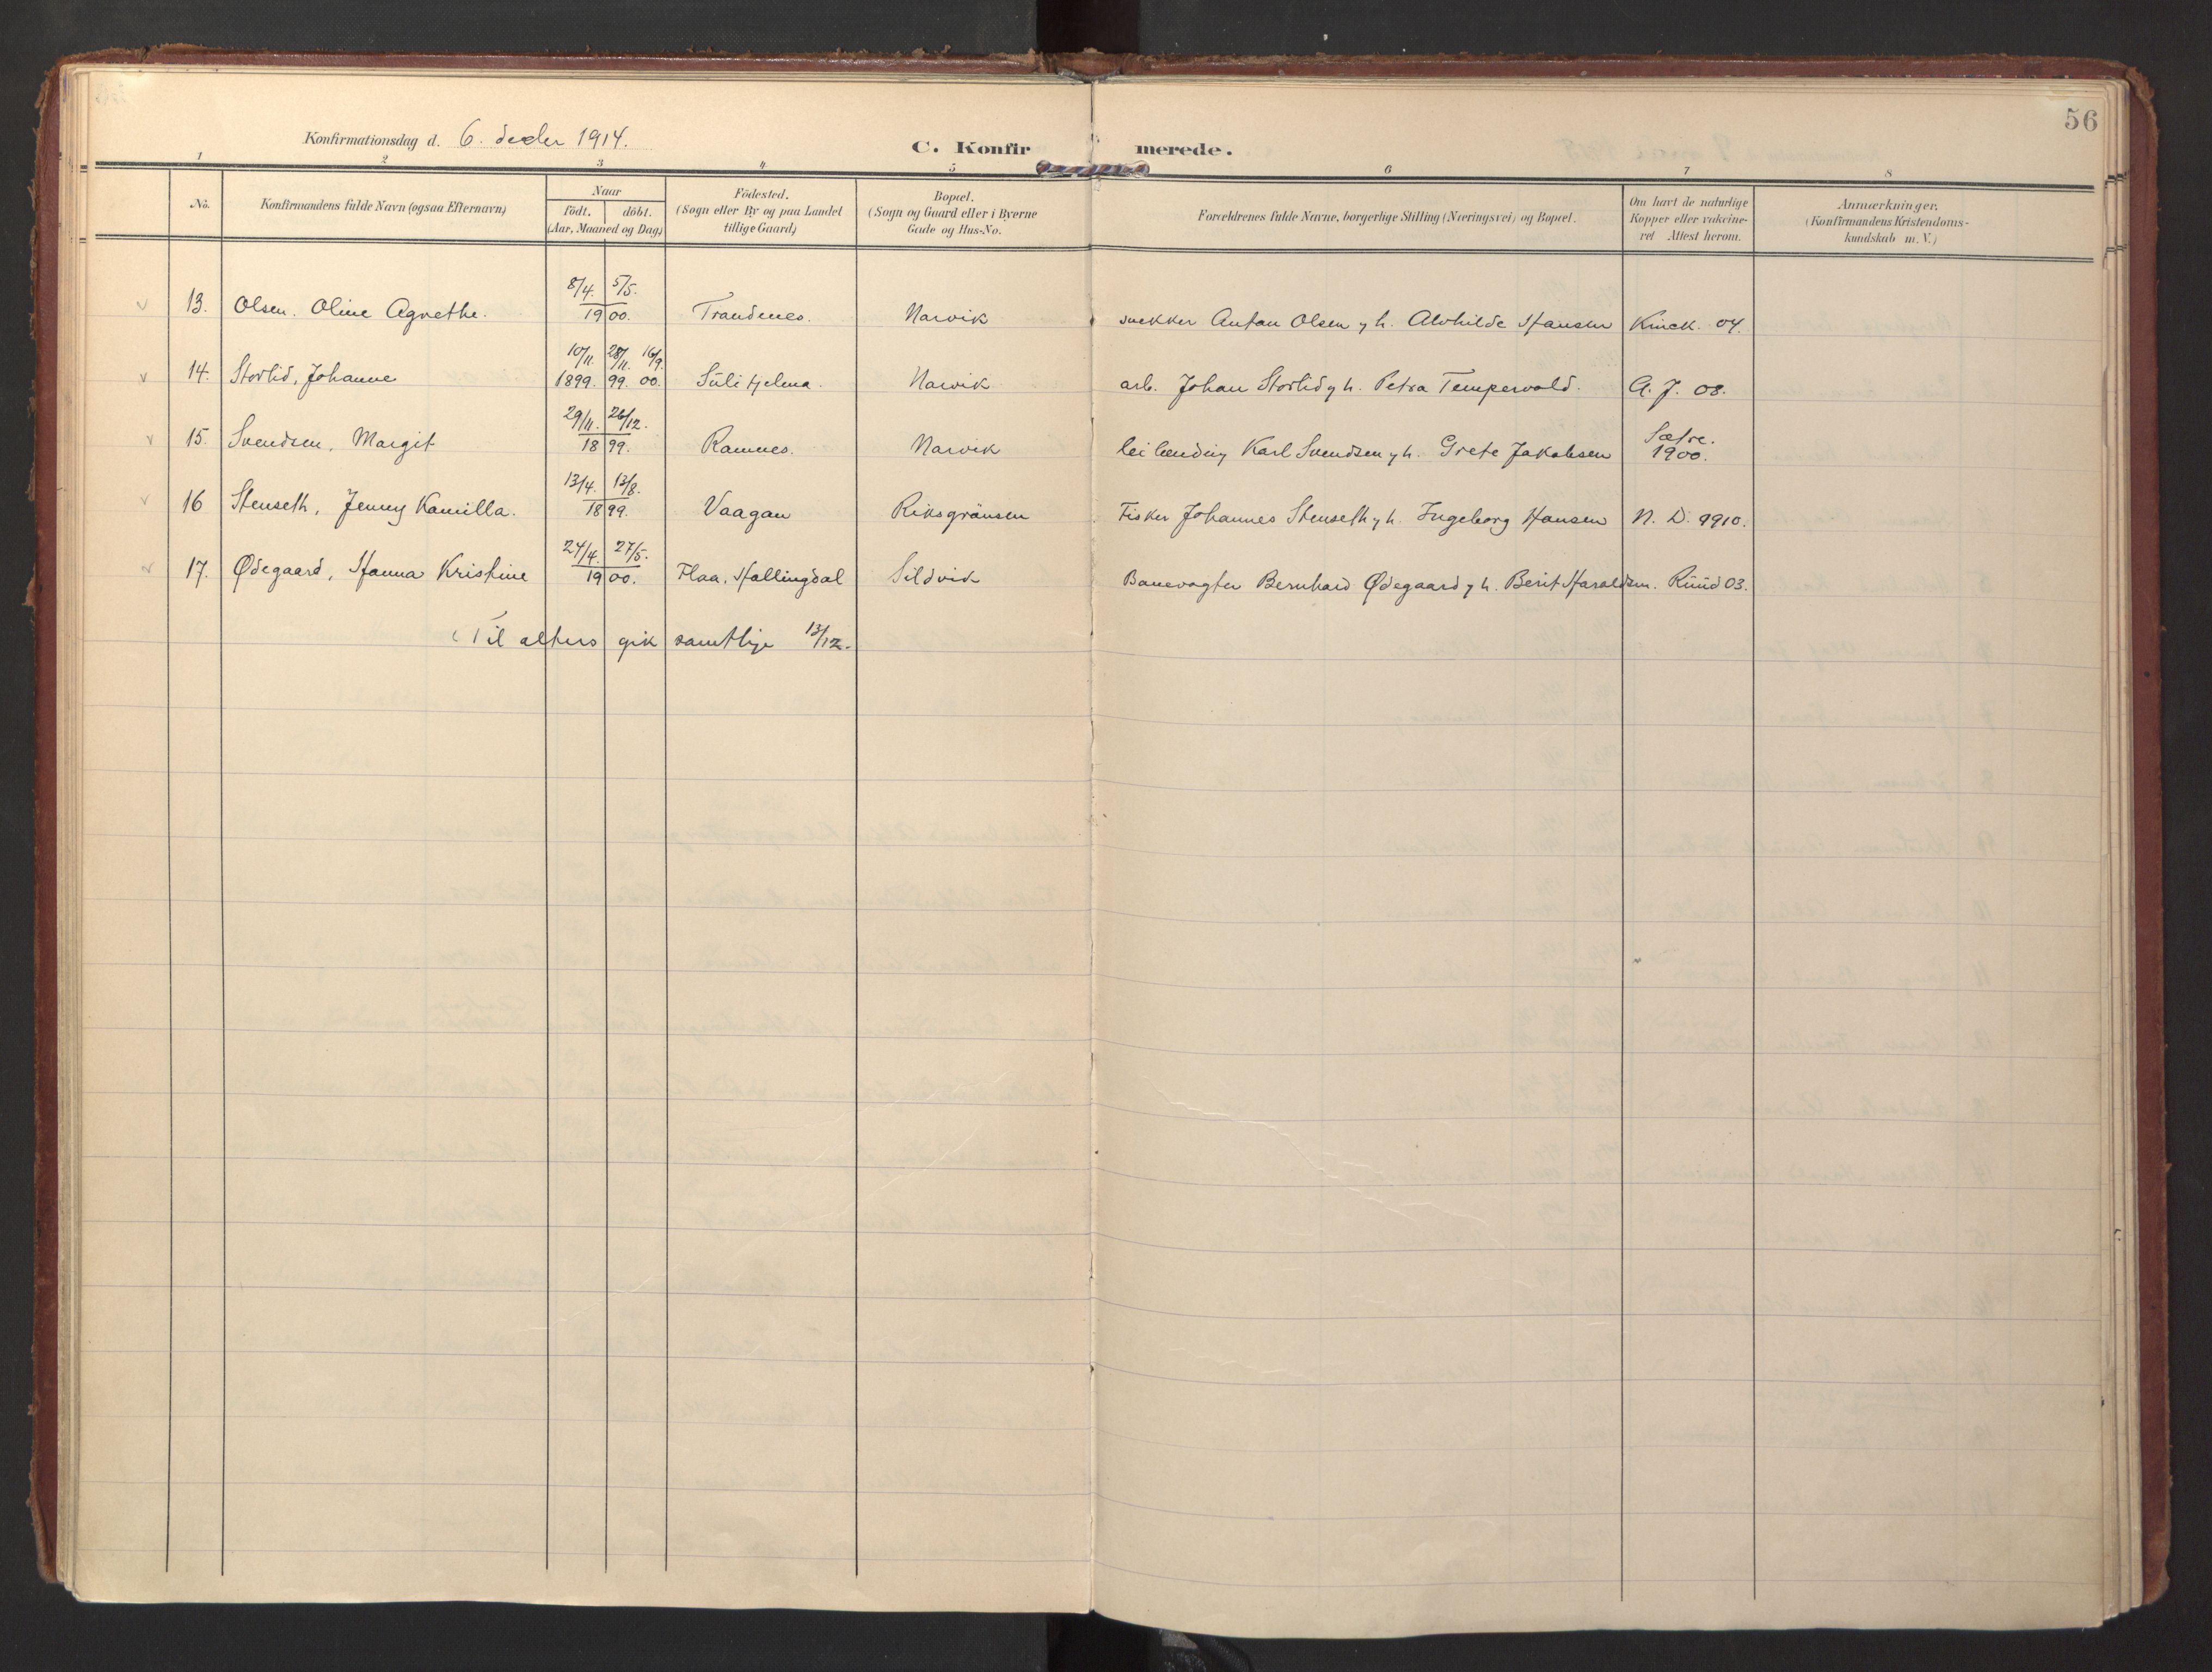 56
Konfirmationsdag d. 6. decbr 1914.
C. Konfirmerede.
1 2 3 4 5 6 7 8
No.
Konfirmandens fulde Navn (ogsaa Efternavn)
Naar
födt. döbt.
(Aar, Maaned og Dag)
Födested.
(Sogn eller By og paa Landet
tillige Gaard)
Bopæl.
(Sogn og Gaard eller i Byerne
Gade og Hus-No.
Forældrenes fulde Navne, borgerlige Stilling (Næringsvei) og Bopæl.
Om havt de naturlige
Kopper eller vakcine-
ret Attest herom.
Anmærkninger.
(Konfirmandens Kristendoms-
kundskab m. V.)
13. Olsen. Oline Agnethe. 8/4. 5/5. 1900. Trandenes. Narvik snekker Anton Olsen y h. Alvhilde Hansen Kinck. 04.
14. Storlid, Johanne 10/11. 1899. 28/11. 99. 16/9. 00. Sülitjelma. Narvik arb. Johan Storlid y h. Petra Tempervold. A. J. 08.
15. Svendsen, Margit 29/11. 26/12. 1899. Ramnes. Narvik leilænding Karl Svendsen y h. Grete Jakobsen Sætre. 1900.
16 Stenseth, Jenny Kamilla. 13/4. 13/8. 1899. Vaagan Riksgränsen Fisker Johannes Stenseth y h. Ingeborg Hansen N. D. 1910.
17. Ødegaard, Hanna Kristine 24/4. 27/5. 1900. Flaa, Hallingdal Sildvik Banevogter Bernhard Ødegaard y h. Berit Haraldsen. Rüüd 03.
Til alters gik samtlige 13/12.